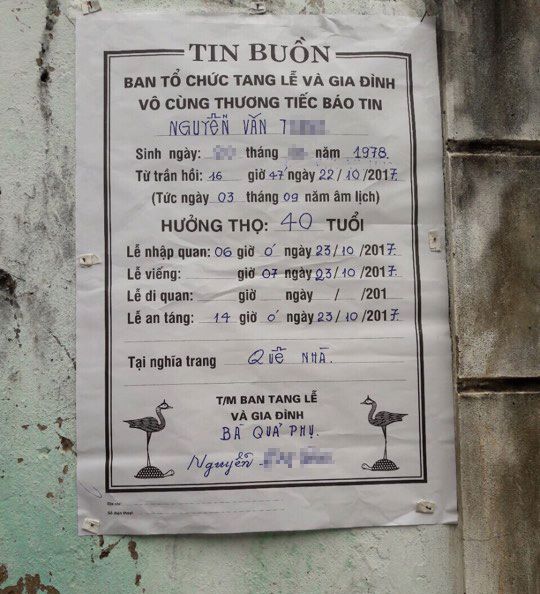 TIN BUỒN
BAN TỔ CHỨC TANG LỄ VÀ GIA ĐÌNH
VÔ CÙNG THƯƠNG TIẾC BÁO TIN
NGUYỄN VĂN
Sinh ngày: tháng năm 1978
Từ trần hồi: 16 giờ 47' ngày 22/10/2017
(Tức ngày 03 tháng 09 năm âm lịch)
HƯỞNG THỌ: 40 TUỔI
Lễ nhập quan: 06 giờ 0' ngày 23/10/2017
Lễ viếng: giờ 07 ngày 23/10/2017
Lễ di quan: giờ ngày / /201
Lễ an táng: 14 giờ 0' ngày 23/10/2017
Tại nghĩa trang QUÊ NHÀ.
T/M BAN TANG LỄ
VÀ GIA ĐÌNH
BÀ QUẢ PHỤ.
Nguyễn
Địa chỉ:
Số điện thoại: